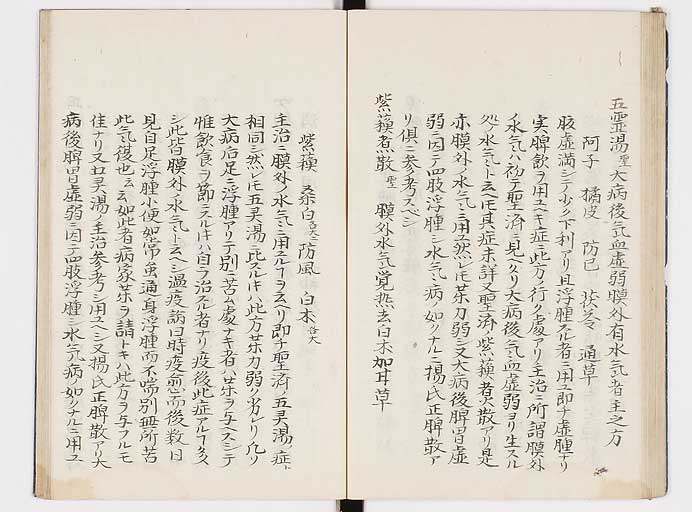 五霊湯 聖 大病後気血虚弱膜外有水気者主之方
阿子 橘皮 防已 茯苓 通草
腹虚満シテ少ク下利アリ且浮腫スル者ニ用ユ即チ虚腫ナリ
実脾飲ヲ用ユヘキ症ニ此方ノ行ク處アリ主治ニ所謂膜外
水気ハ初テ聖済ニ見ヘタリ大病後気血虚弱ヨリ生スル
処ノ水気ト云ヘ𪜈其症未詳又聖済ニ紫蘓煮散アリ是
亦膜外ノ水気ニ用ユ然レ𪜈茱力弱シ又大病後脾胃虚
弱ニ因テ四肢浮腫シ水気病ノ如クナルニ楊氏正脾散ア
リ倶ニ参考スベシ
紫蘓煮散 聖 膜外水気覚熱去白木加甘草
紫蘓 桑白皮 防風 白木 各大
主治ニ膜外ノ水気ニ用ユルヿヲ云ヘリ即チ聖済ノ五灵湯ノ症ト
相同シ然レ𪜈五灵湯ニ比スルキハ此方茱力弱ク劣レリ凡
大病后足ニ浮腫アリテ別ニ苦ム處ナキ者ハ茱ヲ与ヘスシテ
惟飲食ヲ節ニスルキハ自ラ治スル者ナリ疫後此症アルヿ多
シ此皆膜外ノ水気ト云ヘシ温疫論曰時疫愈而後数日
見自足浮腫小便如常雖通身浮腫而不喘別無所苦
此気復也云云如此者病家茱ヲ請トキハ此方ヲ与フルモ
佳ナリ又五灵湯ノ主治参考シ用ユヘシ又楊氏正脾散アリ大
病後脾胃虚弱ニ因テ四肢浮腫シ水気病ノ如クナルニ用ユ